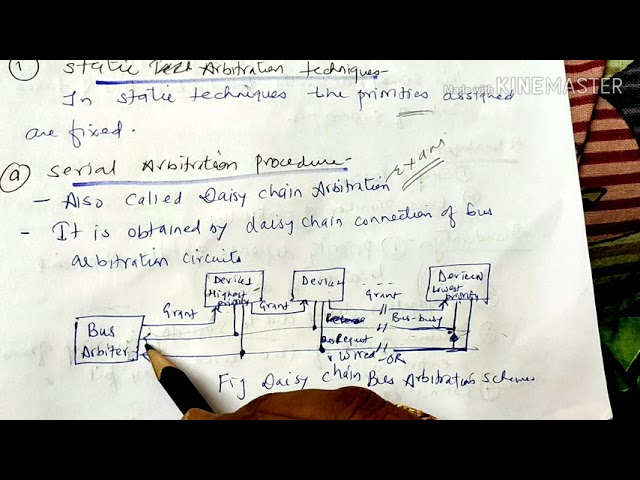 ① Static Arbitration techniques-
Made with KINEMASTER
In static techniques the priorities assigned
are fixed.
ⓐ Serial Arbitration Procedure-
- Also called Daisy chain Arbitration
exam
- It is obtained by daisy chain connection of bus
arbitration circuits
Device1 Highest priority
Device2
DeviceN Lowest priority
Grant
Grant
Grant
Bus-busy
Bus Arbiter
Request
Wired-OR
Fig Daisy chain Bus Arbitration scheme